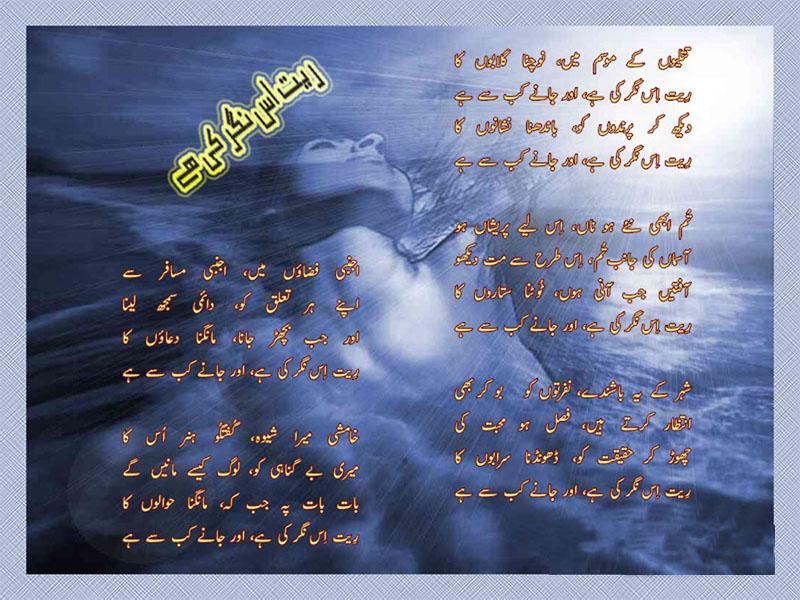 ریت اس نگر کی ہے
تتلیوں کے موسم میں، نوچنا گلابوں کا
رِیت اِس نگر کی ہے، اور جانے کب سے ہے
دیکھ کر پرندوں کو، باندھنا نشانوں کا
رِیت اِس نگر کی ہے، اور جانے کب سے ہے
تُم ابھی نئے ہو ناں، اِس لیے پریشاں ہو
آسماں کی جانب تُم، اِس طرح سے مت دیکھو
آفتیں جب آنی ہوں، ٹُوٹنا ستاروں کا
رِیت اِس نگر کی ہے، اور جانے کب سے ہے
شہر کے یہ باشندے، نفرتوں کو بو کر بھی
انتظار کرتے ہیں، فصل ہو محبت کی
چھوڑ کر حقیقت کو، ڈھونڈنا سرابوں کا
رِیت اِس نگر کی ہے، اور جانے کب سے ہے
اجنبی فضاؤں میں، اجنبی مسافر سے
اپنے ہر تعلق کو، دائمی سمجھ لینا
اور جب بچھڑ جانا، مانگنا دعاؤں کا
رِیت اِس نگر کی ہے، اور جانے کب سے ہے
خامشی میرا شیوہ، گُفتگُو ہنر اُس کا
میری بے گناہی کو، لوگ کیسے مانیں گے
بات بات پہ جب کہ، مانگنا حوالوں کا
رِیت اِس نگر کی ہے، اور جانے کب سے ہے